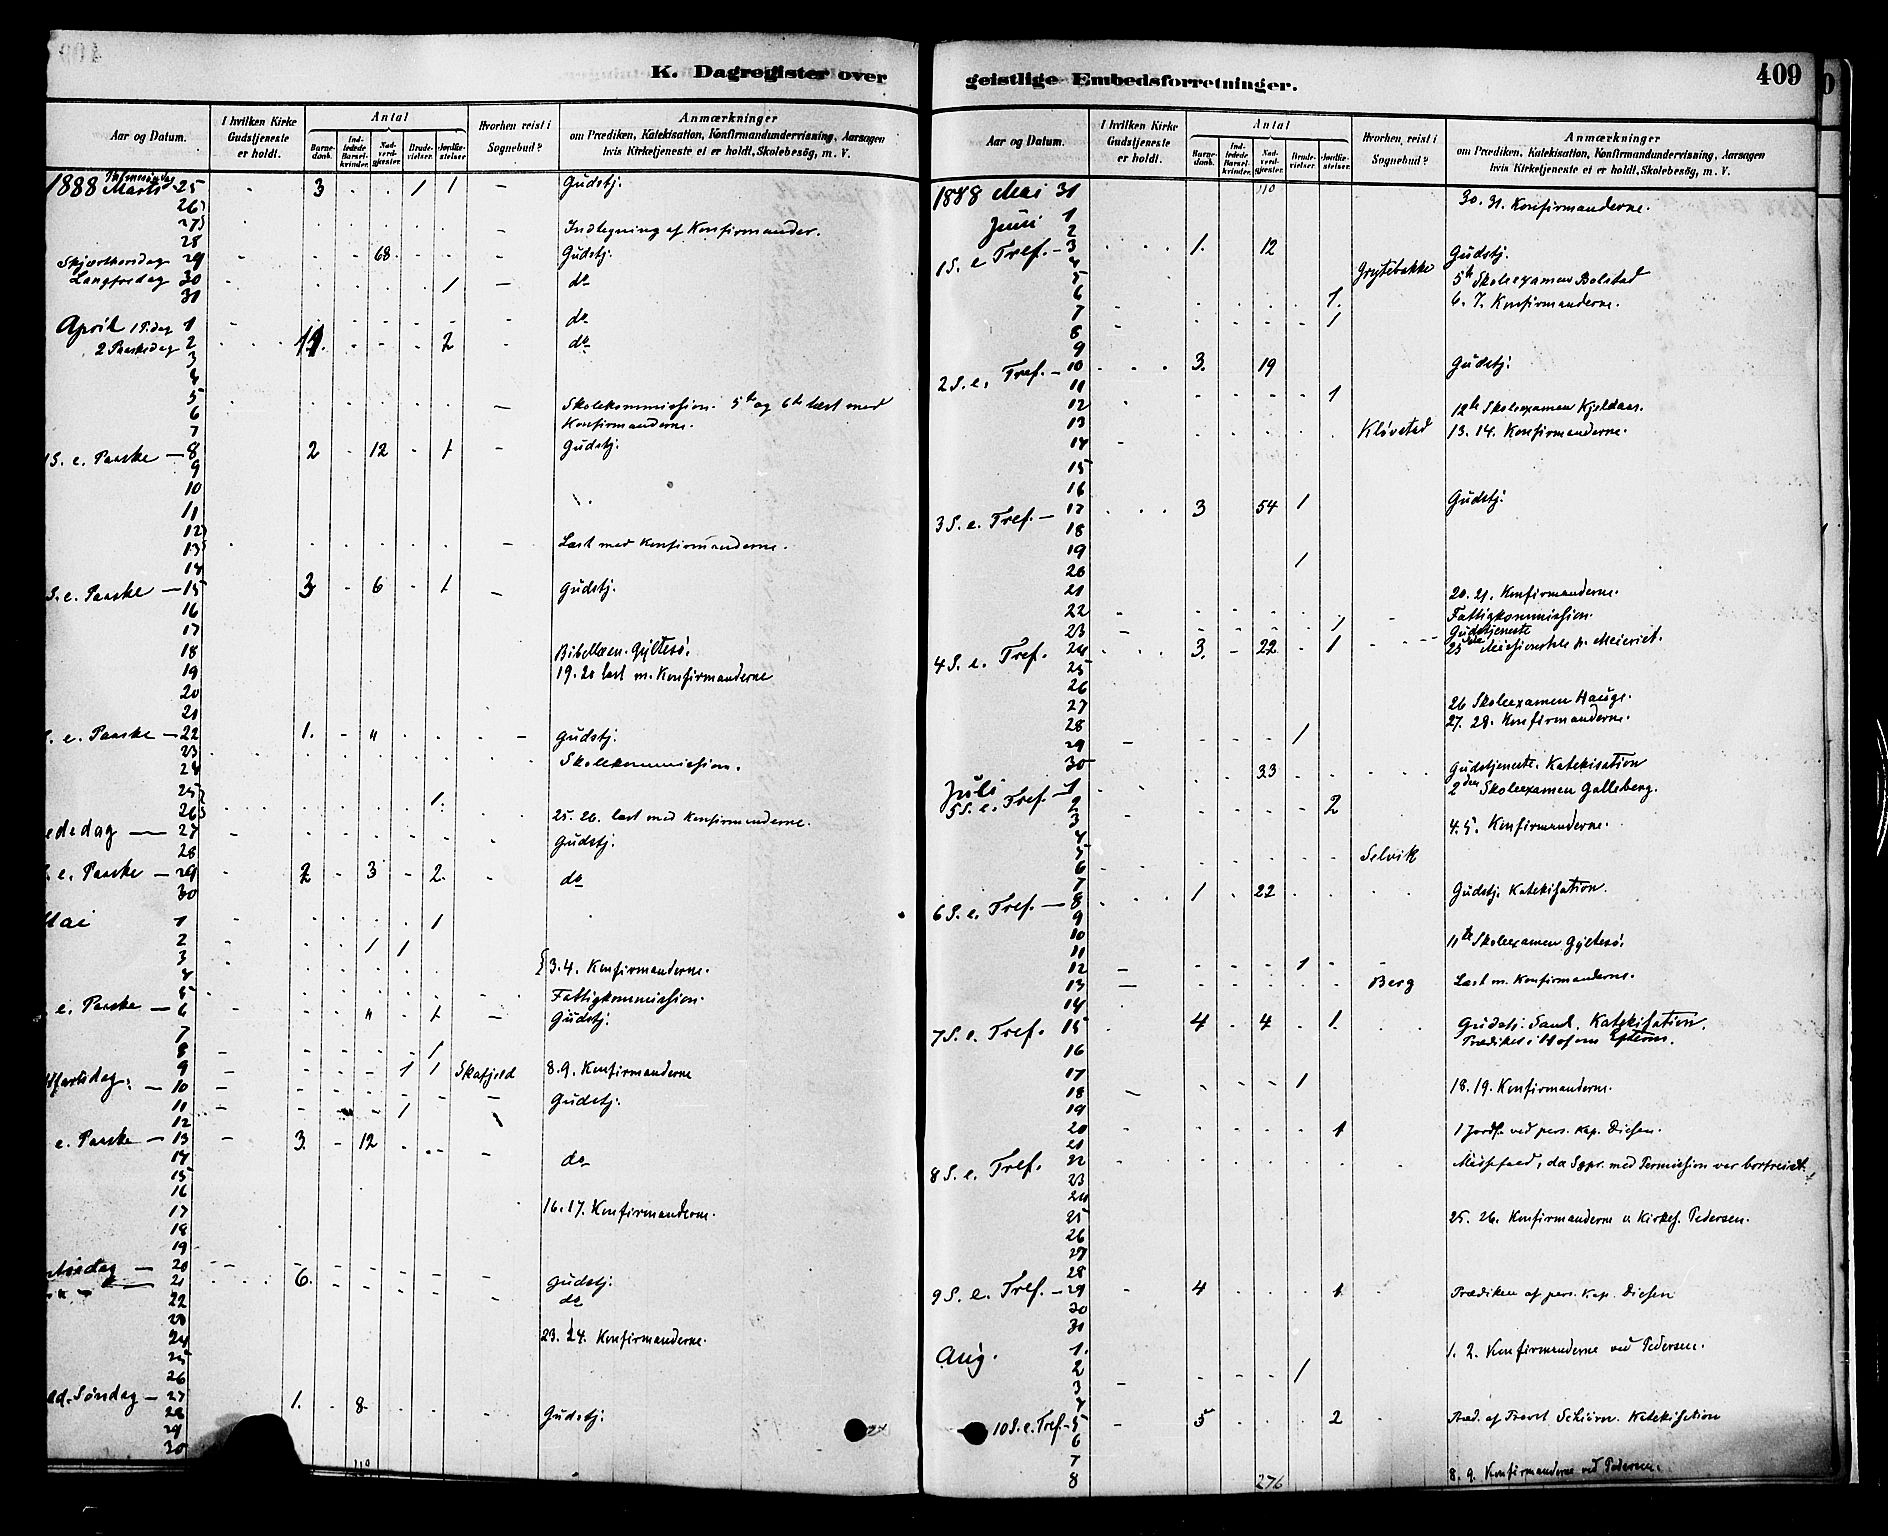 K. Dagregister over
Aar og Datum.
I hvilken Kirke Gudstjeneste er holdt.
Antal
Barnedaab.
Indledede Barselkvinder.
Nadverdgjester.
Brudevielser.
Jordfæstelser
Hvorhen reist i Sognebud?
Anmærkninger
om Prædiken, Katekisation, Konfirmandundervisning, Aarsagen
hvis Kirketjeneste ei er holdt, Skolebesøg, m. V.
1888 Palmesøndag Marts 25 3 1 1 Gudstj.
26
27 Indlegning af Konfirmander.
28
Skjærthorsdag 29 68 Gudstj.
Langfredag 30 1 do
31
April 1 P.dag 1 do
2 Paaskedag 2 11 2 do
3
4
5 Skolekommission. 5te og 6te læst med
6 Konfirmanderne.
7
1 S. e. Paaske 8 2 12 1 Gudstj.
9
10
11
12
13 Læst med Konfirmanderne.
14
S. e. Paaske 15 3 6 1 Gudstj.
16
17
18 Bibellæsn. Gyltesø.
19 19. 20 læst m. Konfirmanderne
20
21
S. e. Paaske 22 1. " Gudstj.
23
24 Skolekommission.
25
26 1. 25. 26. læst med Konfirmanderne.
ededag 27 Gudstj.
28
e. Paaske 29 2 3 2. do
30
Mai 1 1
2 1 1
3 3. 4. Konfirmanderne.
4
5 Fattigkommission.
e. Paaske 6 " 1 Gudstj.
7
8 1
9 1 1 Skafjeld 8.9. Konfirmanderne
lfartsdag. 10 Gudstj.
11 1
12
e. Paaske 13 3. 12 do
14
15
16
17 16. 17. Konfirmanderne.
18
19
20 Gudstj.
21 6. do
22
23 23. 24. Konfirmanderne.
24
25
26
Søndag 27 1. 8 Gudstj.
28
29
30
geistlige Embedsforretninger.
409
Aar og Datum.
I hvilken Kirke Gudstjeneste er holdt.
Antal
Barnedaab.
Indledede Barselkvinder.
Nadverdgjester.
Brudevielser.
Jordfæstelser.
Hvorhen reist i Sognebud?
Anmærkninger
om Prædiken, Katekisation, Konfirmandundervisning, Aarsagen
hvis Kirketjeneste ei er holdt, Skolebesøg, m. V.
1888 Mai 31 110 30. 31. Konfirmanderne.
Juni 1
2
1 S. e Tref. 3 1. 12 Gudstj.
4 Grytebakke 5te Skoleexamen Bolstad
5
6 1. 6. 7. Konfirmanderne.
7 1
8
9
2 S. e. Tref. 10 3. 19 Gudstj.
11
12 1 12te Skoleexamen Kjeldaas.
13 Kløvstad 13. 14. Konfirmanderne.
14
15
16
3 S. e. Tref. 17 3 54 1 Gudstj.
18
19
20 1
21 20. 21. Konfirmanderne.
22 Fattigkommission.
23 1 Gudstjeneste
4 S. e. Tref. 24 3. 22 1 25de Meieriet.
25
26 26 Skoleexamen Hauge.
27 27. 28. Konfirmanderne.
28
29 1
30
Juli 1 33 Gudstjeneste. Katekisation
5 S. e. Tref. 2 2 2den Skoleexamen Galleberg.
3 4. 5. Konfirmanderne.
4
5 Selvik
6
7
6 S. e. Tref. 8 1 22 Gudstj. Katekisation.
9
10
11 11te Skoleexamen Gyltesø.
12 1
13 Berg Læst m. Konfirmanderne.
14
7 S. e. Tref. 15 4 4 1. Gudstj. Sand. Katekisation.
16 Prædiket i Hof om Efterm.
17
18 1 18. 19. Konfirmanderne.
19
20 1 1 Jordf. ved pers. Kap. Diesen.
21
8 S. e. Tref. 22 Messefald, da Sgpr. med Permission var bortreist.
23
24
25 25. 26. Konfirmanderne v. Kirkes. Pedersen.
26
27
28
9 S. e. Tref. 29 4 1 Prædiken af pers. Kap. Diesen
30
31
Aug. 1. 1. 2. Konfirmanderne ved Pedersen.
2 1
3
4
10 S. e. Tref. 5 5 2 Præd. af Provst Schiørn. Katekisation
6
7
8 276 8. 9. Konfirmanderne ved Pedersen.